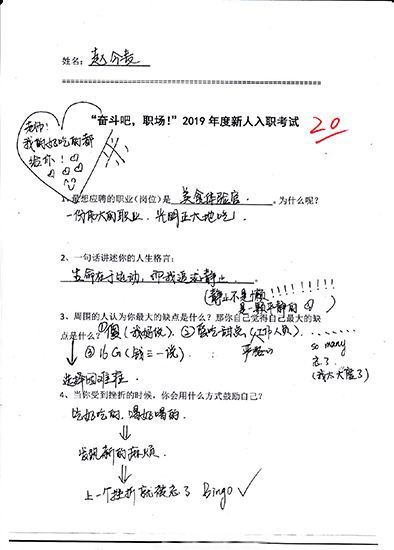 姓名： 赵今麦
"奋斗吧，职场！"2019 年度新人入职考试
20
老师！
我的好吃的都
给你！
1、最想应聘的职业（岗位）是 美食体验官 。为什么呢？
一份伟大的职业，光明正大地吃！
2、一句话讲述你的人生格言：
生命在于运动，而我追求静止。
（静止不是懒！！！！！！！！
是一颗平静的
3、周围的人认为你最大的缺点是什么？那你自己觉得自己最大的缺
点是什么？①傻（我好像）. ②爱吃甜点（工作人员）.......
③ 16G（钱三一说）
so many
忘了
（我太大度了）
选择困难症
4、当你受到挫折的时候，你会用什么方式鼓励自己？
吃好吃的，喝好喝的
发现新的麻烦.
上一个挫折就被忘了 Bingo ✓